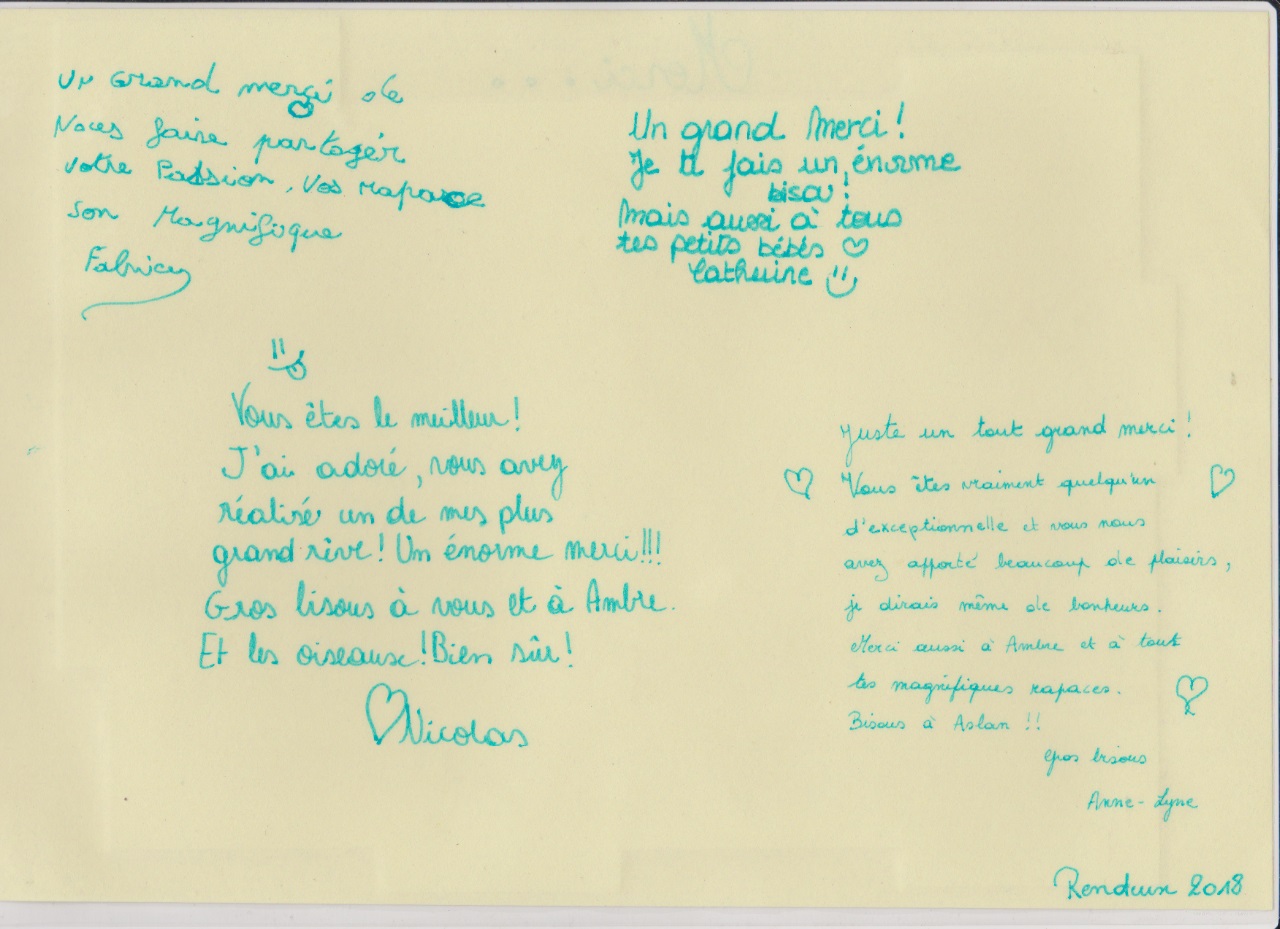 Merci...
Un Grand merçi de
Nous faire partagér
votre Passion, vos rapace
son Magnifique
Fabrice
Un grand Merci!
Je te fais un énorme
bisou!
Mais aussi à tous
tes petits bébés ♡
Catherine
Vous êtes le meilleur!
J'ai adoré, vous avez
réalisé un de mes plus
grand rêve! Un énorme merci!!!
Gros bisous à vous et à Ambre.
Et les oiseaux! Bien sûr!
♡Nicolas
Juste un tout grand merci!
♡ Vous êtes vraiment quelqu'un ♡
d'exceptionnelle et vous nous
avez apporté beaucoup de plaisirs,
je dirais même de bonheurs.
Merci aussi à Ambre et à tout
tes magnifiques rapaces. ♡
Bisous à Aslan!!
Gros bisous
Anne-Lyne
Rendeux 2018